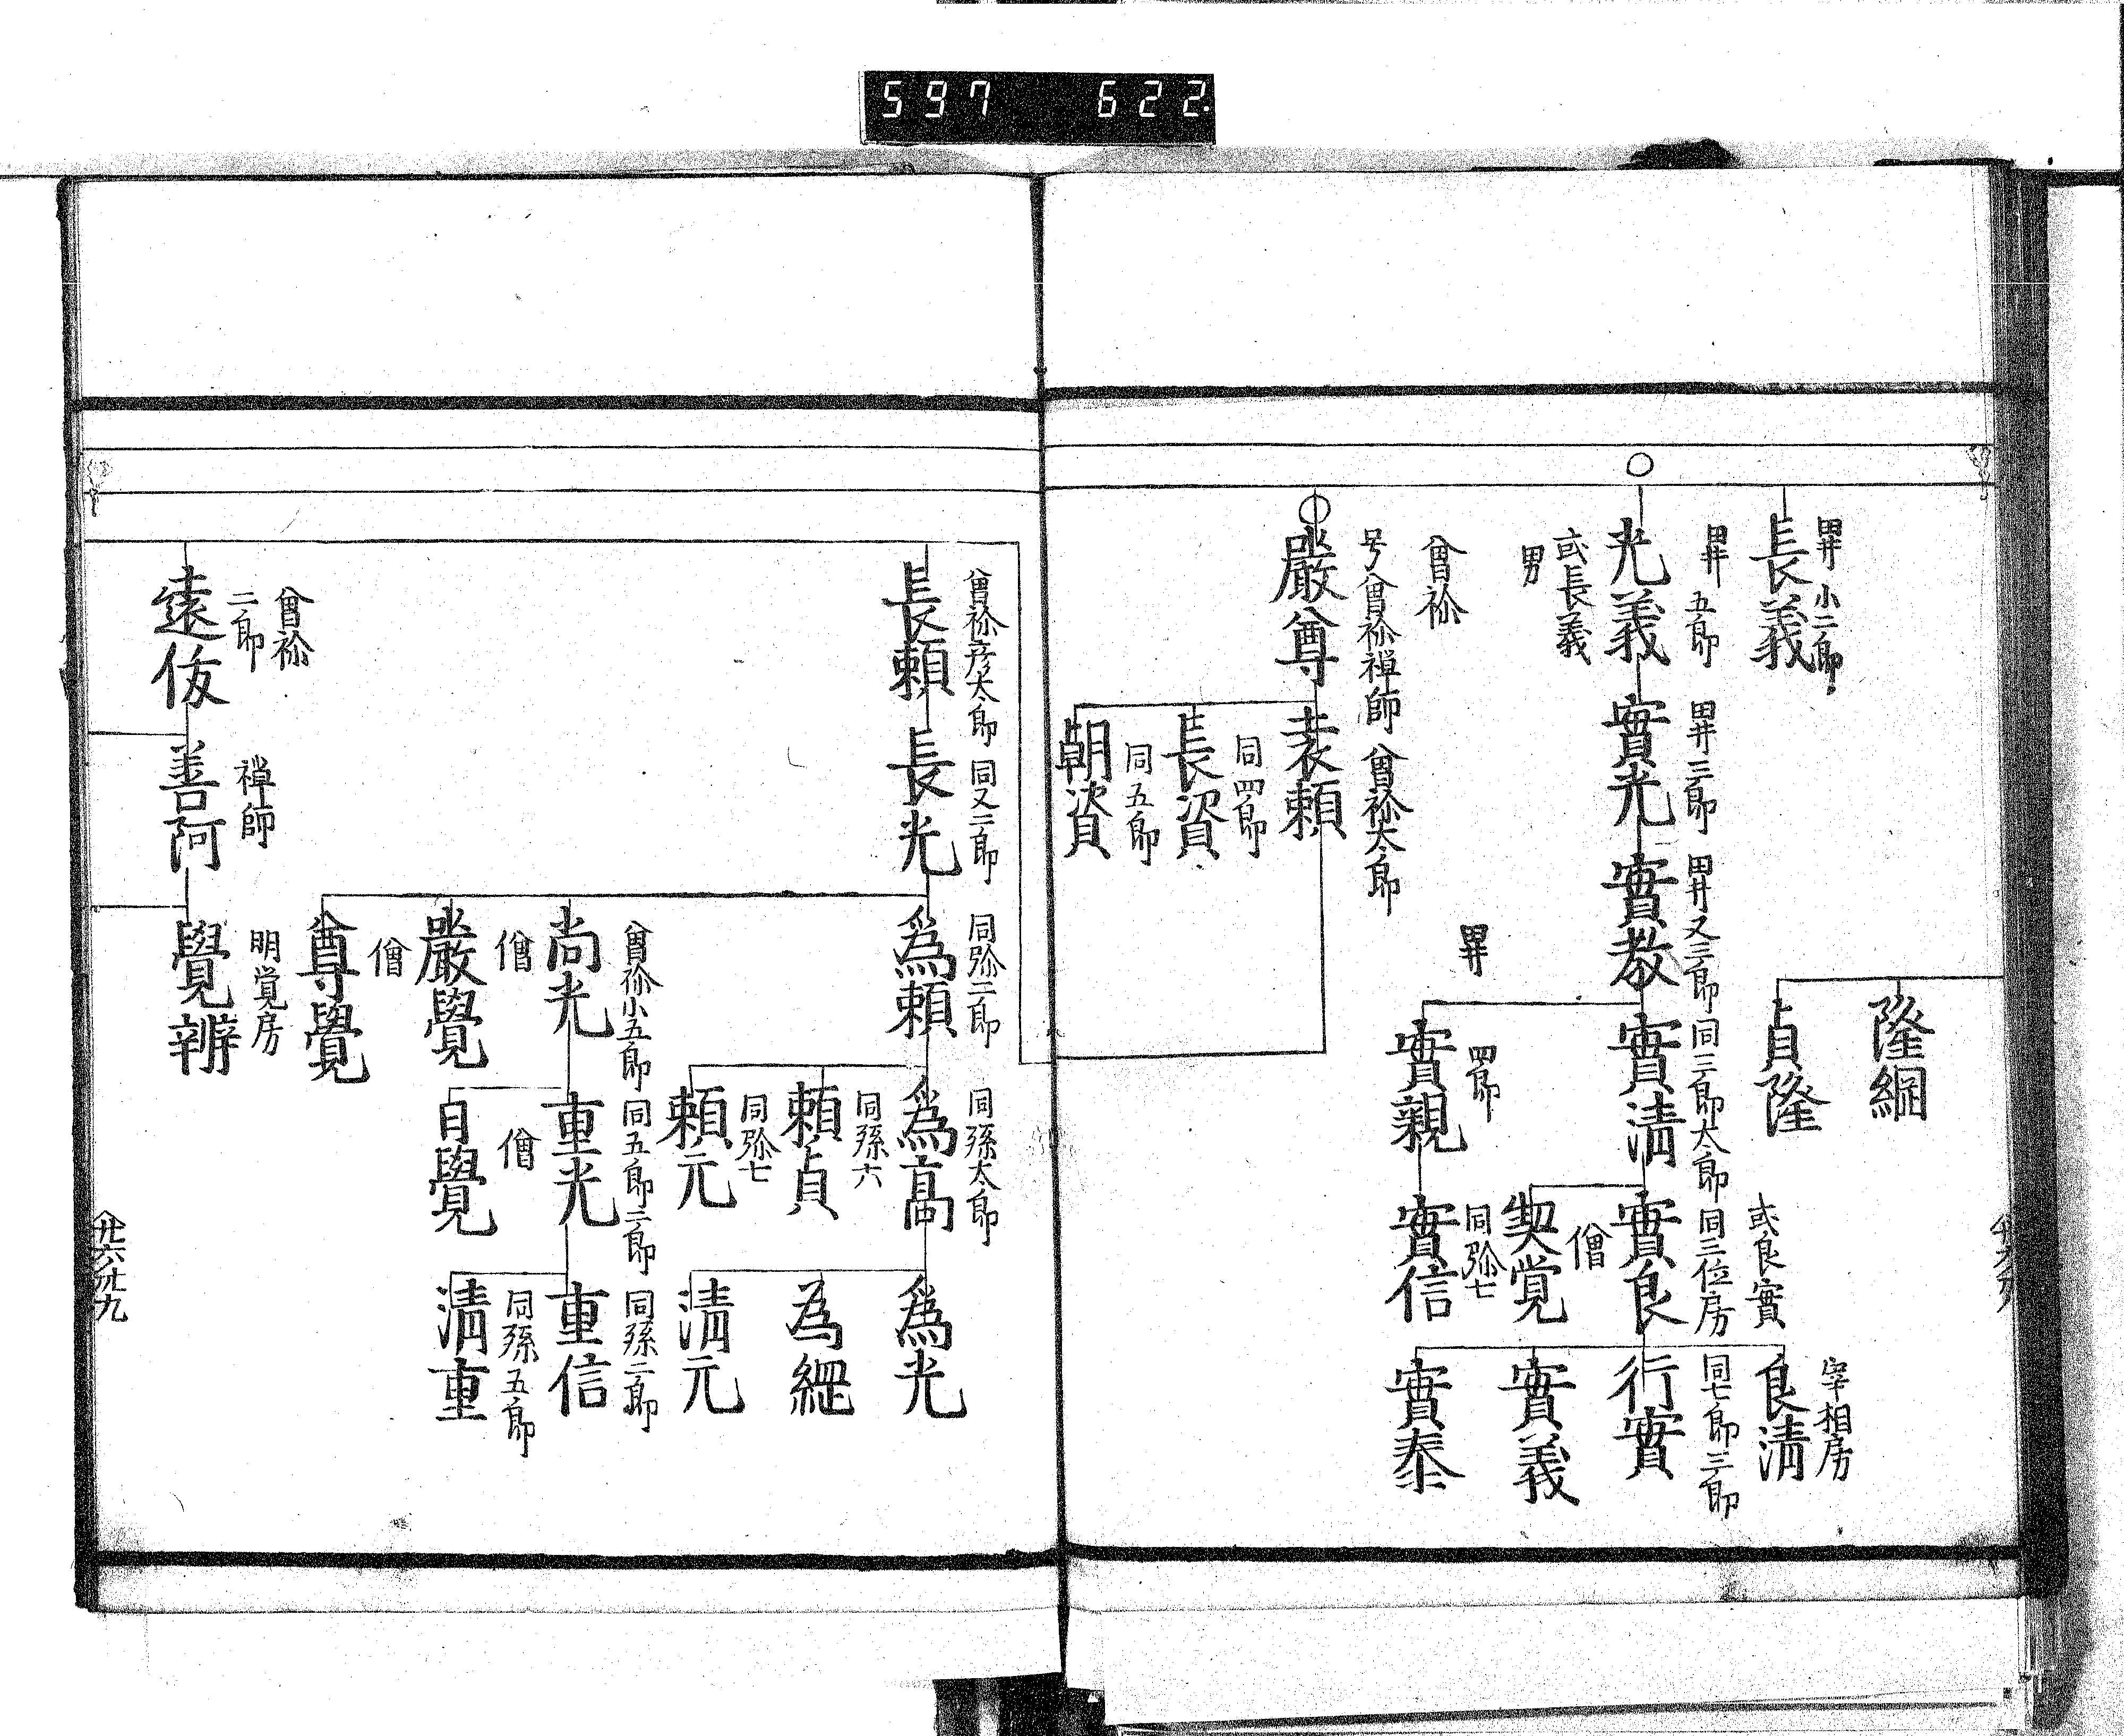 597 622
畀 小二郎
長義
畀 五郎
光義
或長義
男
畀三郎
實光
畀又三郎
實教
隆綱
貞隆
同三郎太郎
實清
畀
四郎
實親
或良實
同三位房
實良
僧
契覚
同弥七
實信
宰相房
良清
同七郎三郎
行實
實義
實泰
曾祢
号曾祢禅師
嚴尊
曾祢太郎
表頼
同四郎
長資
同五郎
朝資
曾祢彦太郎
長頼
同又二郎
長光
同弥二郎
為頼
曾祢小五郎
尚光
僧
嚴覺
僧
尊覺
同孫太郎
為高
同孫六
頼貞
同弥七
頼元
同五郎二郎
重光
僧
自覺
為光
為綱
清元
同孫二郎
重信
同孫五郎
清重
曾祢
二郎
遠依
禅師
善阿
明覚房
覺辨